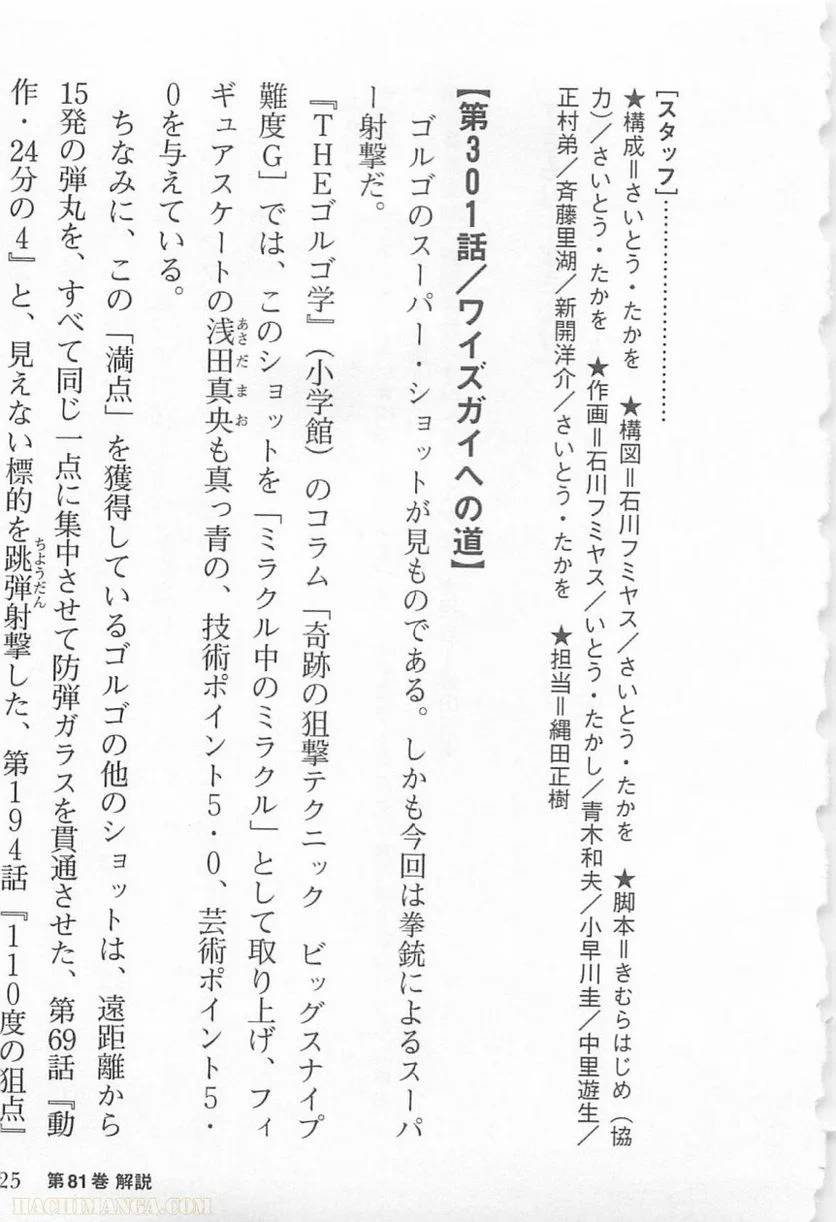 [スタッフ]…………………………
★構成＝さいとう・たかを　★構図＝石川フミヤス／さいとう・たかを　★脚本＝きむらはじめ（協
力）／さいとう・たかを　★作画＝石川フミヤス／いとう・たかし／青木和夫／小早川圭／中里遊生／
正村弟／斉藤里湖／新開洋介／さいとう・たかを　★担当＝縄田正樹
【第301話／ワイズガイへの道】
ゴルゴのスーパー・ショットが見ものである。しかも今回は拳銃によるスーパ
ー射撃だ。
『THEゴルゴ学』（小学館）のコラム「奇跡の狙撃テクニック　ビッグスナイプ
難度G」では、このショットを「ミラクル中のミラクル」として取り上げ、フィ
ギュアスケートの浅田真央も真っ青の、技術ポイント5・0、芸術ポイント5・
あさだまお
0を与えている。
ちなみに、この「満点」を獲得しているゴルゴの他のショットは、遠距離から
15発の弾丸を、すべて同じ一点に集中させて防弾ガラスを貫通させた、第69話『動
作・24分の4』と、見えない標的を跳弾射撃した、第194話『110度の狙点』
ちょうだん
25　第81巻 解説
HACHIMANGA.COM